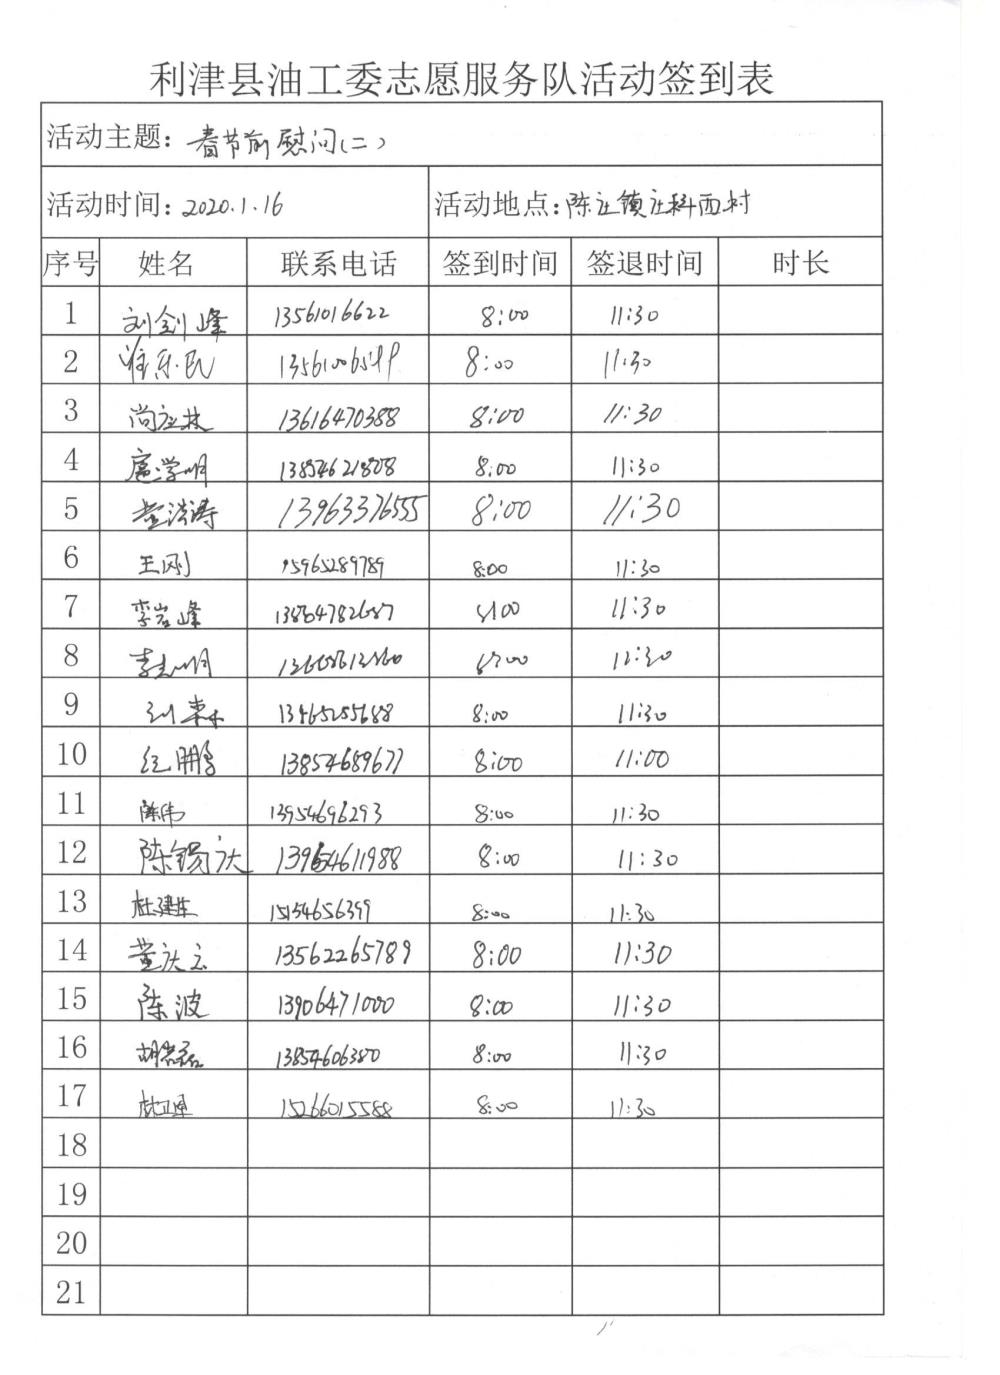 利津县油工委志愿服务队活动签到表
活动主题: 春节前慰问(二)
活动时间: 2020.1.16 活动地点: 陈庄镇庄科西村
序号 姓名 联系电话 签到时间 签退时间 时长
1 刘剑峰 13561016622 8:00 11:30
2 8:00 11:30
3 尚庄林 13616470388 8:00 11:30
4 扈学明 13854621808 8:00 11:30
5 董洪涛 13963376555 8:00 11:30
6 王刚 15965289789 8:00 11:30
7 李岩峰 8:00 11:30
8 李志明
9 13465255688 8:00 11:30
10 纪鹏 13854689677 8:00 11:00
11 陈伟 13954696293 8:00 11:30
12 陈锡庆 8:00 11:30
13 杜建生 15154656399 8:00 11:30
14 董庆云 13562265789 8:00 11:30
15 陈波 13906471000 8:00 11:30
16 13854606380 8:00 11:30
17 15266015588 8:00 11:30
18
19
20
21